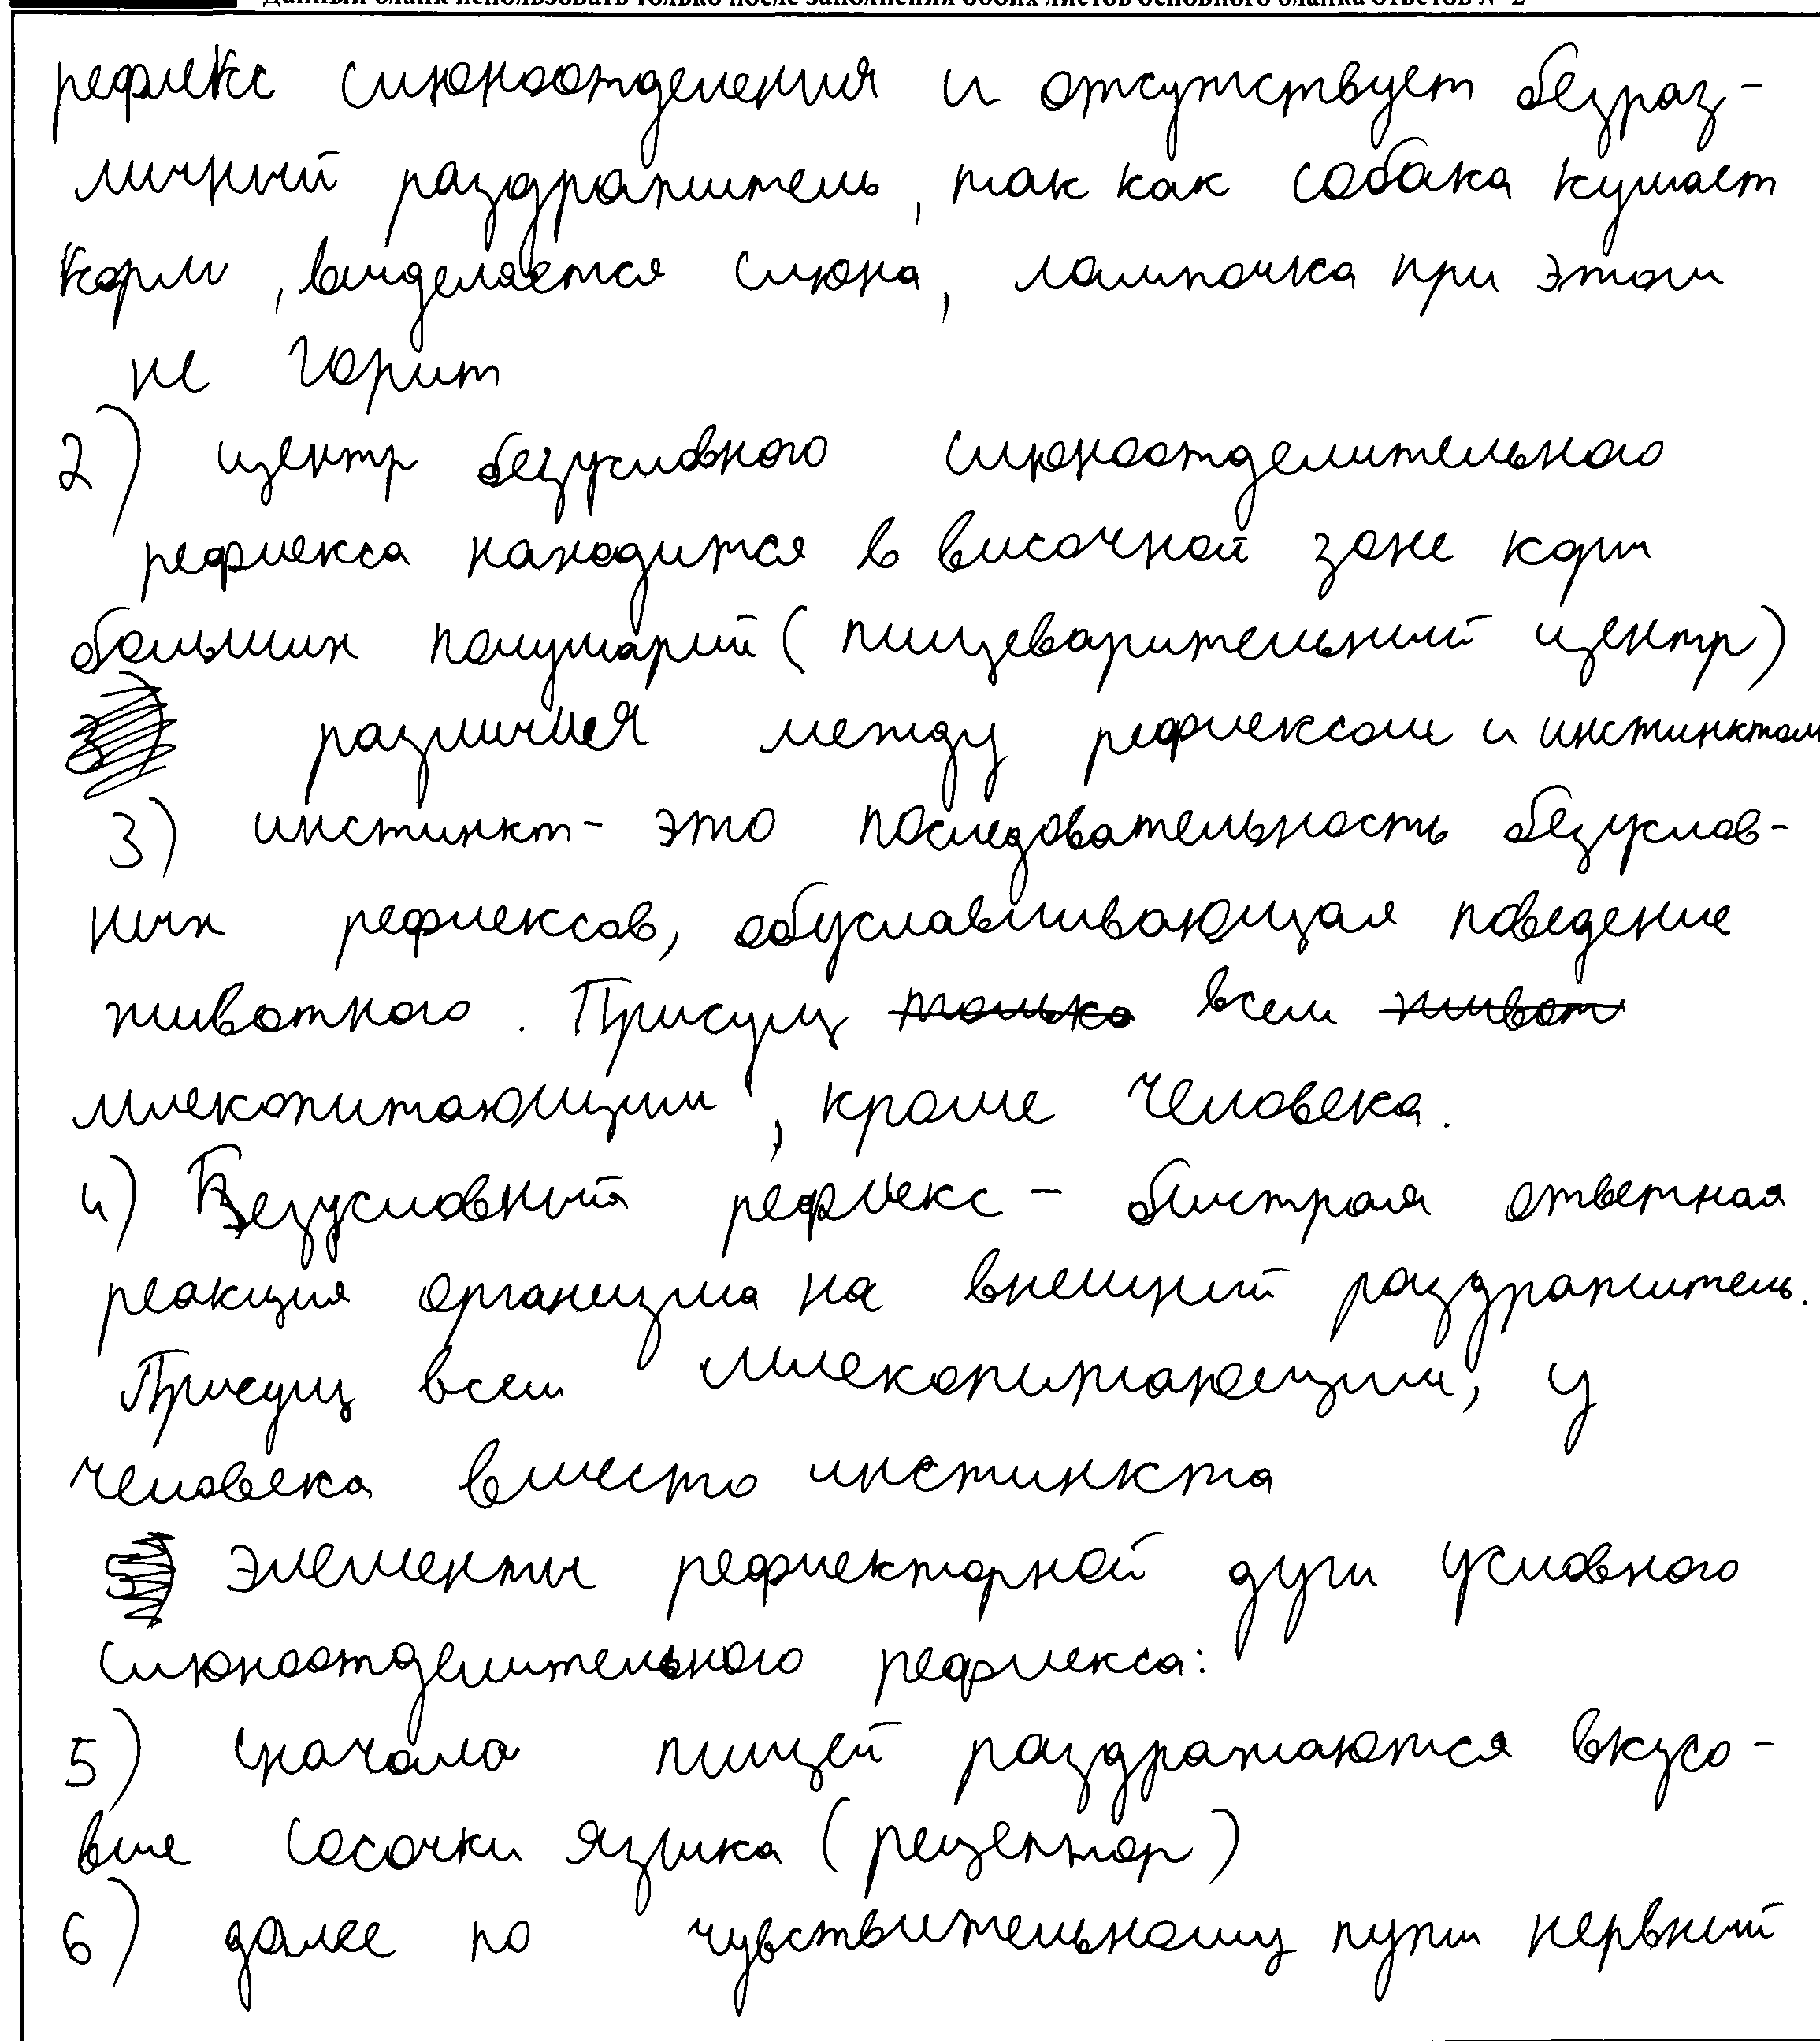 Данный бланк использовать только после заполнения обоих листов основного бланка ответов № 2
рефлекс слюноотделения и отсутствует безраз-
личный раздражитель, так как собака кушает
корм, выделяется слюна, лампочка при этом
не горит
2) центр безусловного слюноотделительного
рефлекса находится в височной зоне коры
больших полушарий (пищеварительный центр)
3) различия между рефлексом и инстинктом
3) инстинкт - это последовательность безуслов-
ных рефлексов, обуславливающая поведение
животного. Присущ только всем живот
млекопитающим, кроме человека.
4) Безусловный рефлекс - быстрая ответная
реакция организма на внешний раздражитель.
Присущ всем млекопитающим, у
человека вместо инстинкта
5) элементы рефлекторной дуги условного
слюноотделительного рефлекса:
5) сначала пищей раздражаются вкусо-
вые сосочки языка (рецептор)
6) далее по чувствительному пути нервный